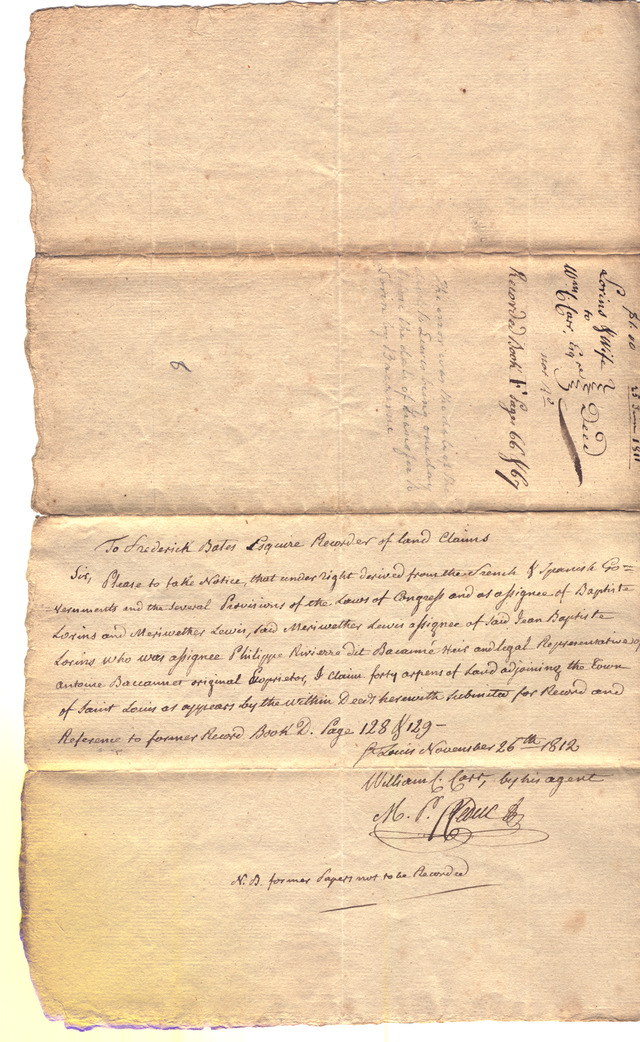 $6.00
Lorins & Wife
to
Wm. C. Carr, Esqr.
Deed
25 June 1811
Recorded Book F Pages 66 & 67
To Frederick Bates Esquire Recorder of land Claims
Sir, Please to take Notice, that under right derived from the French & Spanish Go=
=vernments and the several Provisions of the Laws of Congress and as assignee of Baptiste
Lorins and Meriwether Lewis, said Meriwether Lewis assignee of Said Jean Baptiste
Lorins who was assignee Philippe Rivierre dit Baccanné Heir and legal Representative of
Antoine Baccannet original proprietor, I claim forty arpens of Land adjoining the Town
of Saint Louis as appears by the within Deeds herewith submitted for Record and
Reference to former Record Book D. Page 128 & 129 -
St Louis November 26th 1812
William C. Carr, by his agent
M. P. Leduc
N.B. former Papers not to be Recorded